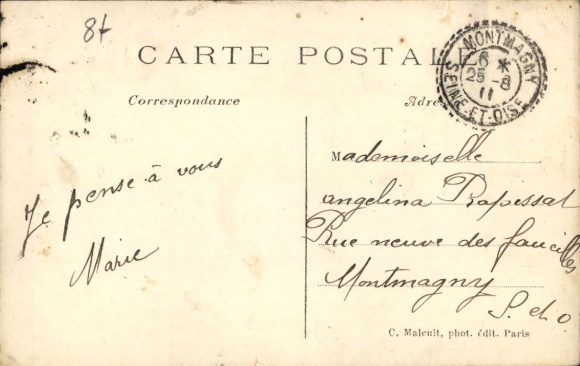 8t
CARTE POSTALE
MONTMAGNY
6 *
25 - 8
11
SEINE-ET-OISE
Correspondance
Adre
Mademoiselle
angelina Rapissat
Rue neuve des faucilles
Montmagny
S. et O.
Je pense à vous
Marie
C. Malcuit, phot. édit. Paris